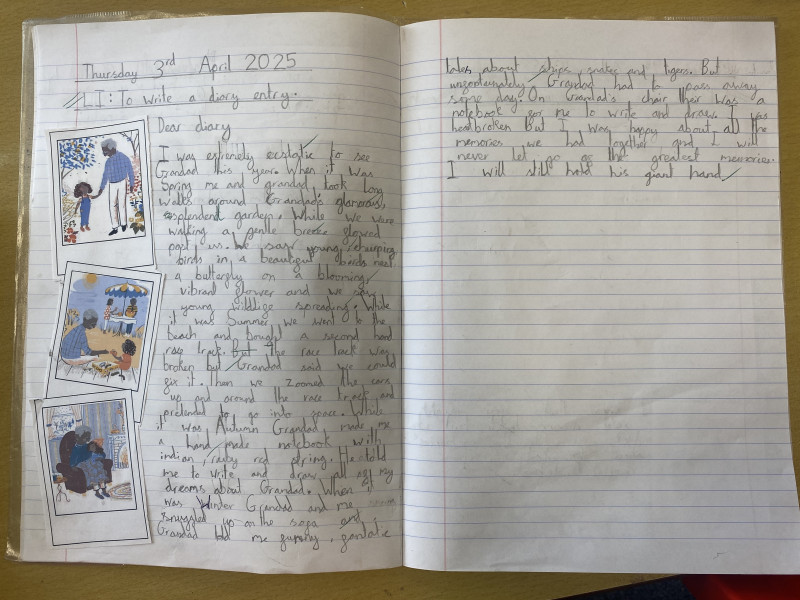 Thursday 3rd April 2025
LI: To write a diary entry.
Dear diary
I was extremely ecstatic to see
Grandad this year. When it was
Spring me and grandad took long
walks around Grandad's glamorous,
splendent garden. While we were
walking a gentle breeze glowed
past us. We saw young, chirping
birds in a beautiful birds nest
a butterfly on a blooming,
vibrant flower and we saw
young wildlife spreading. While
it was Summer we went to the
beach and bought a second hand
race track. But The race tack was
broken but Grandad said we could
fix it. Then we zoomed the cars
up and around the race track and
pretended to go into space. While
it was Autumn Grandad made me
a hand made notebook with
indian, ruby red string. He told
me to write and draw all of my
dreams about Grandad. When it
was Winter Grandad and me
snuggled up on the sofa and
Grandad told me funny,
tales about ships, snakes and tigers. But
unfortunately Grandad had to pass away
some day. On Grandad's chair their was a
notebook for me to write and draw. I was
heartbroken but I was happy about all the
memories we had together and I will
never let go of the greatest memories.
I will still hold his giant hand